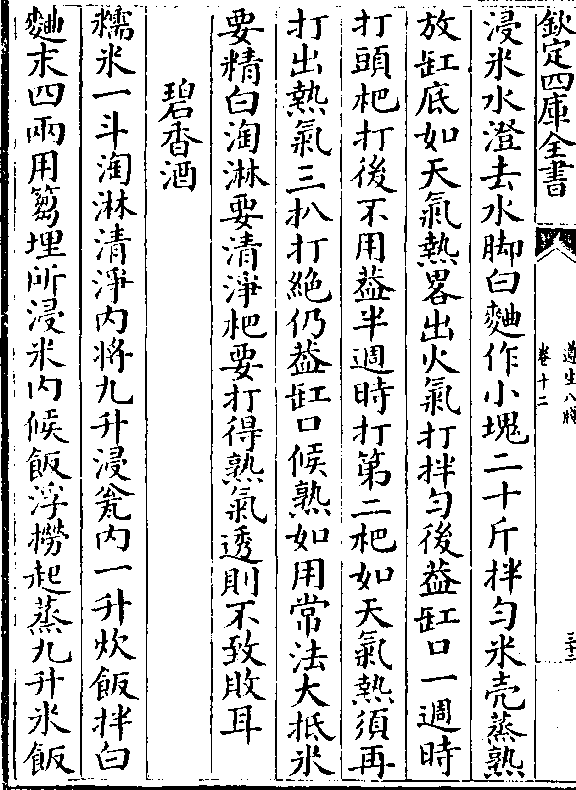 欽定四庫全書
遵生八牋
卷十二
三十二
浸米水澄去水脚白麯作小塊二十斤拌匀米壳蒸熟
放缸底如天氣熱畧出火氣打拌匀後葢缸口一週時
打頭杷打後不用葢半週時打第二杷如天氣熱須再
打出熱氣三扒打絶仍葢缸口候熟如用常法大抵米
要精白淘淋要清淨杷要打得熱氣透則不致敗耳
碧香酒
糯米一斗淘淋清淨内將九升浸瓮内一升炊飯拌白
麯末四兩用篘埋所浸米内候飯浮撈起蒸九升米飯